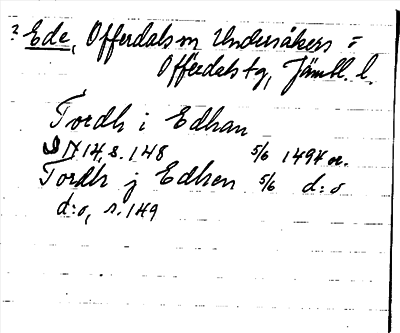 ? Ede, Offerdals sn Undersåkers =
Offerdals tg, Jämtl. l.
Tordh i Edhan
N 14, s. 148 5/6 1494 or.
Tordh j Edhen 5/6 d:o
d:o, s. 149